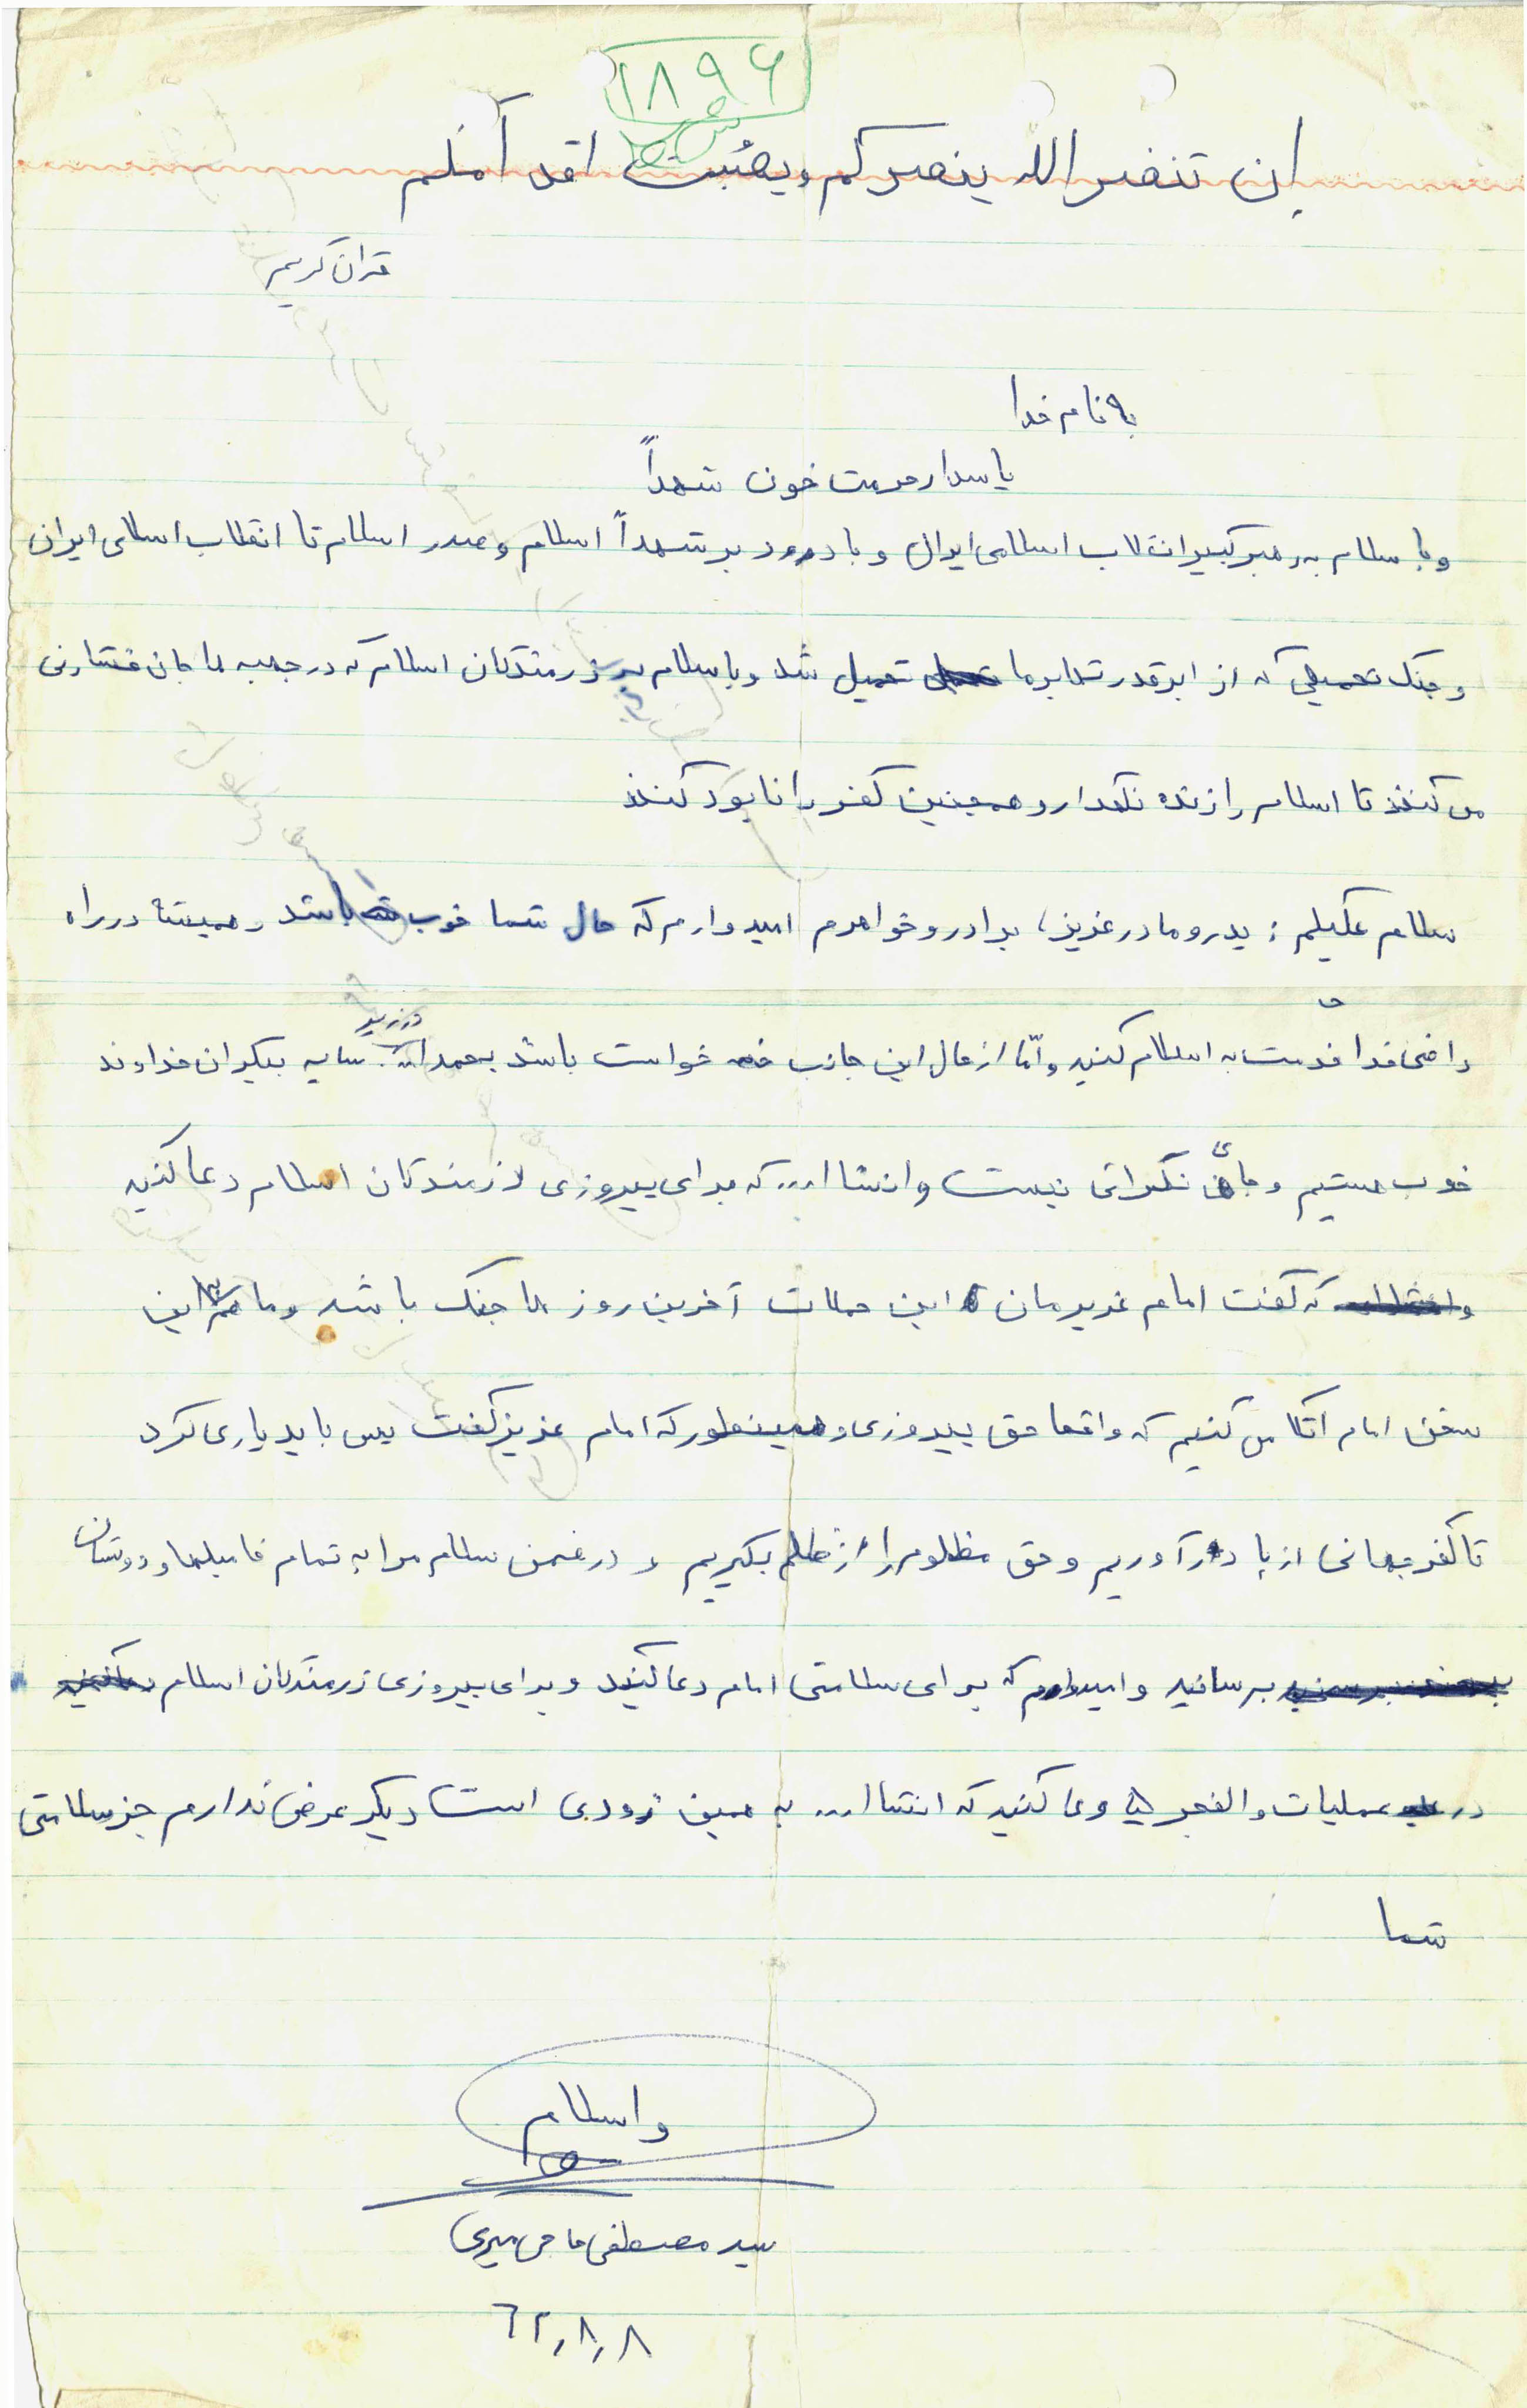 ۱۸۹۶
إن تنصر الله ینصرکم ویثبت اقدامکم
قران کریم
به نام خدا
پاسدار حرمت خون شهداً
و با سلام به رهبر کبیر انقلاب اسلامی ایران و با درود بر شهداً اسلام و صدر اسلام تا انقلاب اسلامی ایران
و جنگ تحمیلی که از ابرقدرتها بر ما تحمیل شد و با سلام بر رزمندگان اسلام که در جبهه ها جان فشارنی
می کنند تا اسلام را زنده نگهدار و همچنین کفر را نابود کنند
سلام علیکم : پدر و مادر عزیز، برادر و خواهرم امیدوارم که حال شما خوب باشد و همیشا در راه
راضی خدا خدمت به اسلام کنید و امّا از حال این جانب خواست باشد بحمدالله در زیر سایه بیکران خداوند
خوب هستیم و جای نگرانی نیست و انشا ا... که برای پیروزی رزمندگان اسلام دعا کنید
که گفت امام عزیزمان این حملات آخرین روز ها جنگ باشد و ما هم به این
سخن امام اتکا می کنیم که واقعا حق پیروزی و همینطور که امام عزیز گفت پس باید یاری کرد
تا کفر جهانی از پا در آوریم و حق مظلوم را از ظالم بگیریم و در ضمن سلام مرا به تمام فامیلها و دوستان
برسانید و امیدوارم که برای سلامتی امام دعا کنید و برای پیروزی رزمندگان اسلام
در عملیات والفجر دعا کنید که انشا ا... به همین زودی است دیگر عرض ندارم جز سلامتی
شما
واسلام
سید مصطفی حاجی میری
۶۲٫۸٫۸